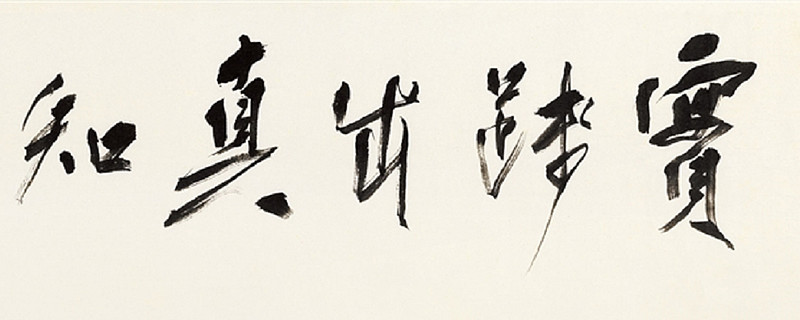 實踐出真知